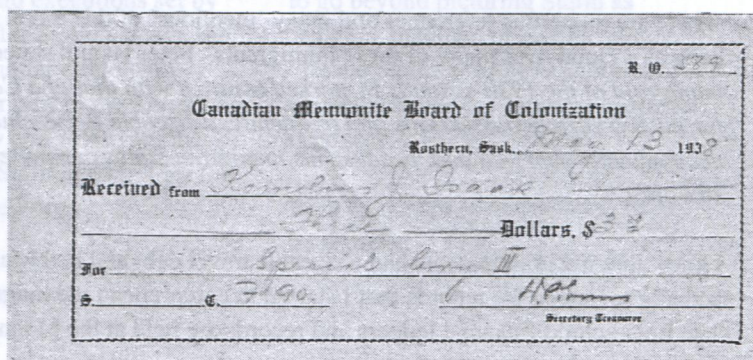 R. O. 379
Canadian Mennonite Board of Colonization
Rosthern, Sask., May 13 1938
Received from Kornelius J Isaak
Dollars, $
For Special levy III
S. C. 7490.
Secretary Treasurer